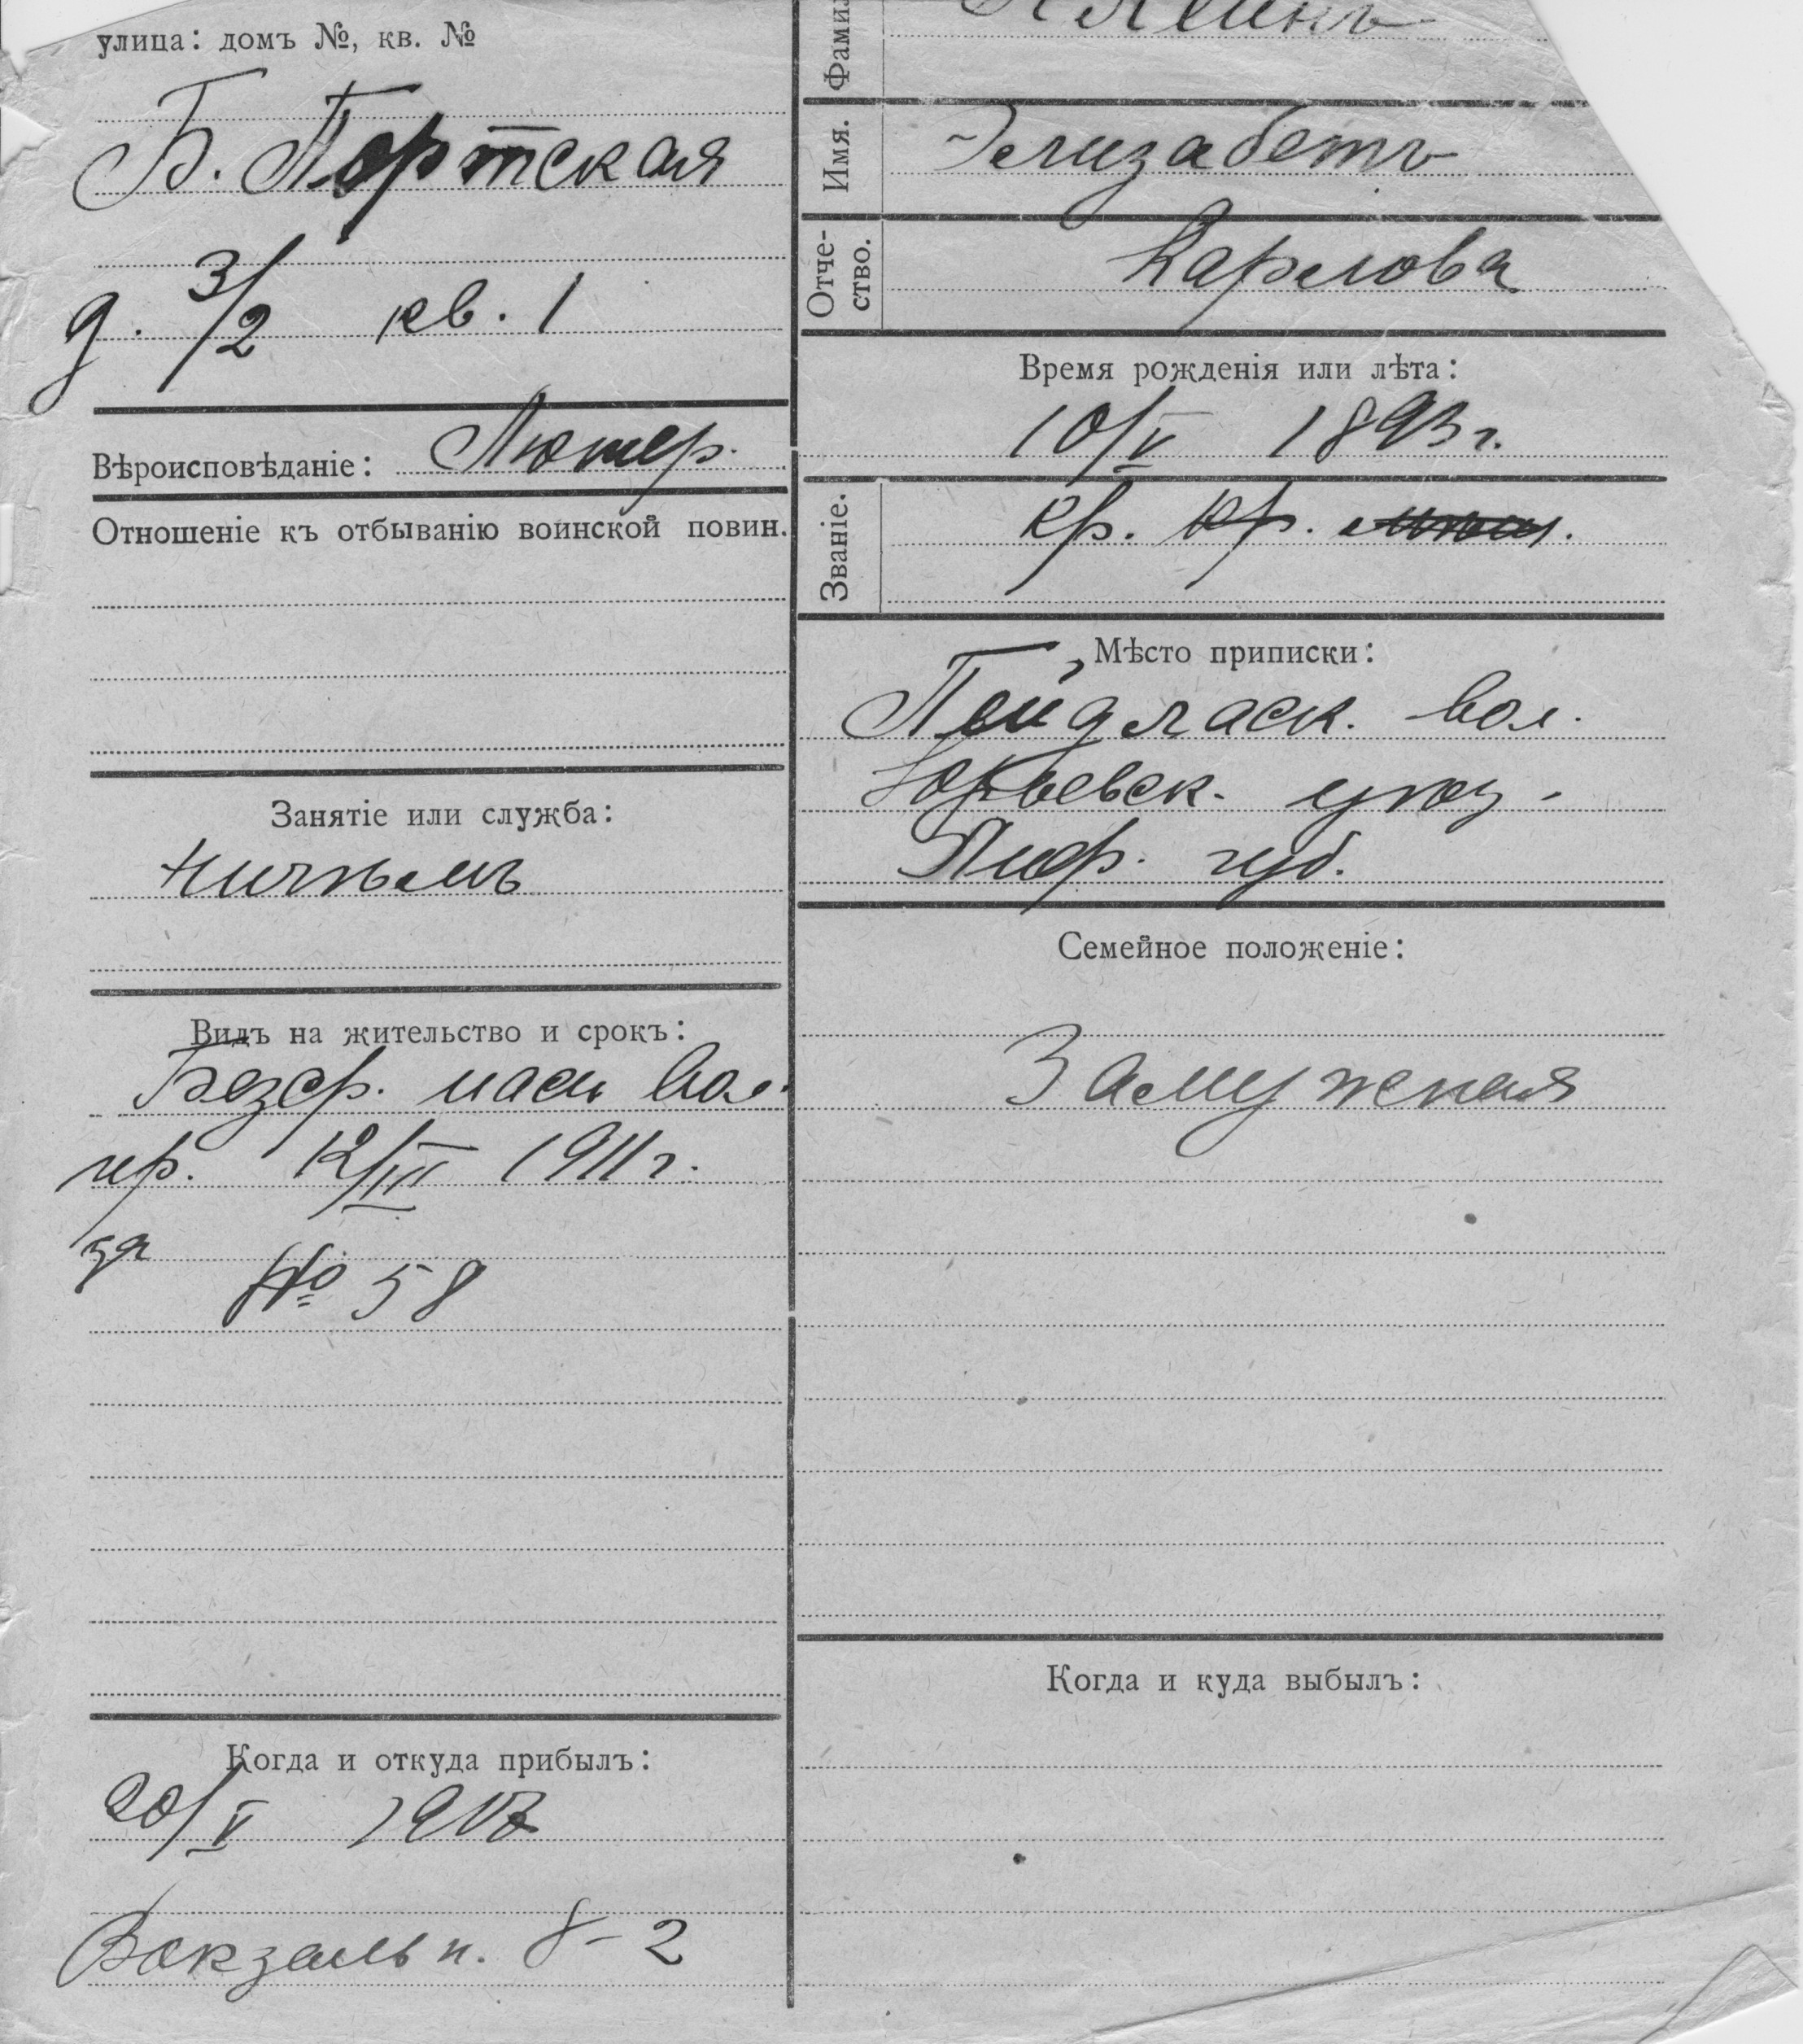 улица: домъ №, кв. №
Б. Портская
д. 3/2 кв. 1
Вѣроисповѣданіе: Лютер.
Отношеніе къ отбыванію воинской повин.
Занятіе или служба:
Ничѣмъ
Видъ на жительство и срокъ:
Безср. пасп. вол.
пр. 12/III 1911 г.
за № 58
Когда и откуда прибылъ:
20/V 1917
Вокзальн. 8-2
Фамил
Клейнъ
Имя.
Элизабетъ
Отче-
ство.
Карлова
Время рожденія или лѣта:
10/V 1893 г.
Званіе.
кр. кр.
Мѣсто приписки:
вол.
Юрьевск. уѣз.
Лифл. губ.
Семейное положеніе:
Замужняя
Когда и куда выбылъ: